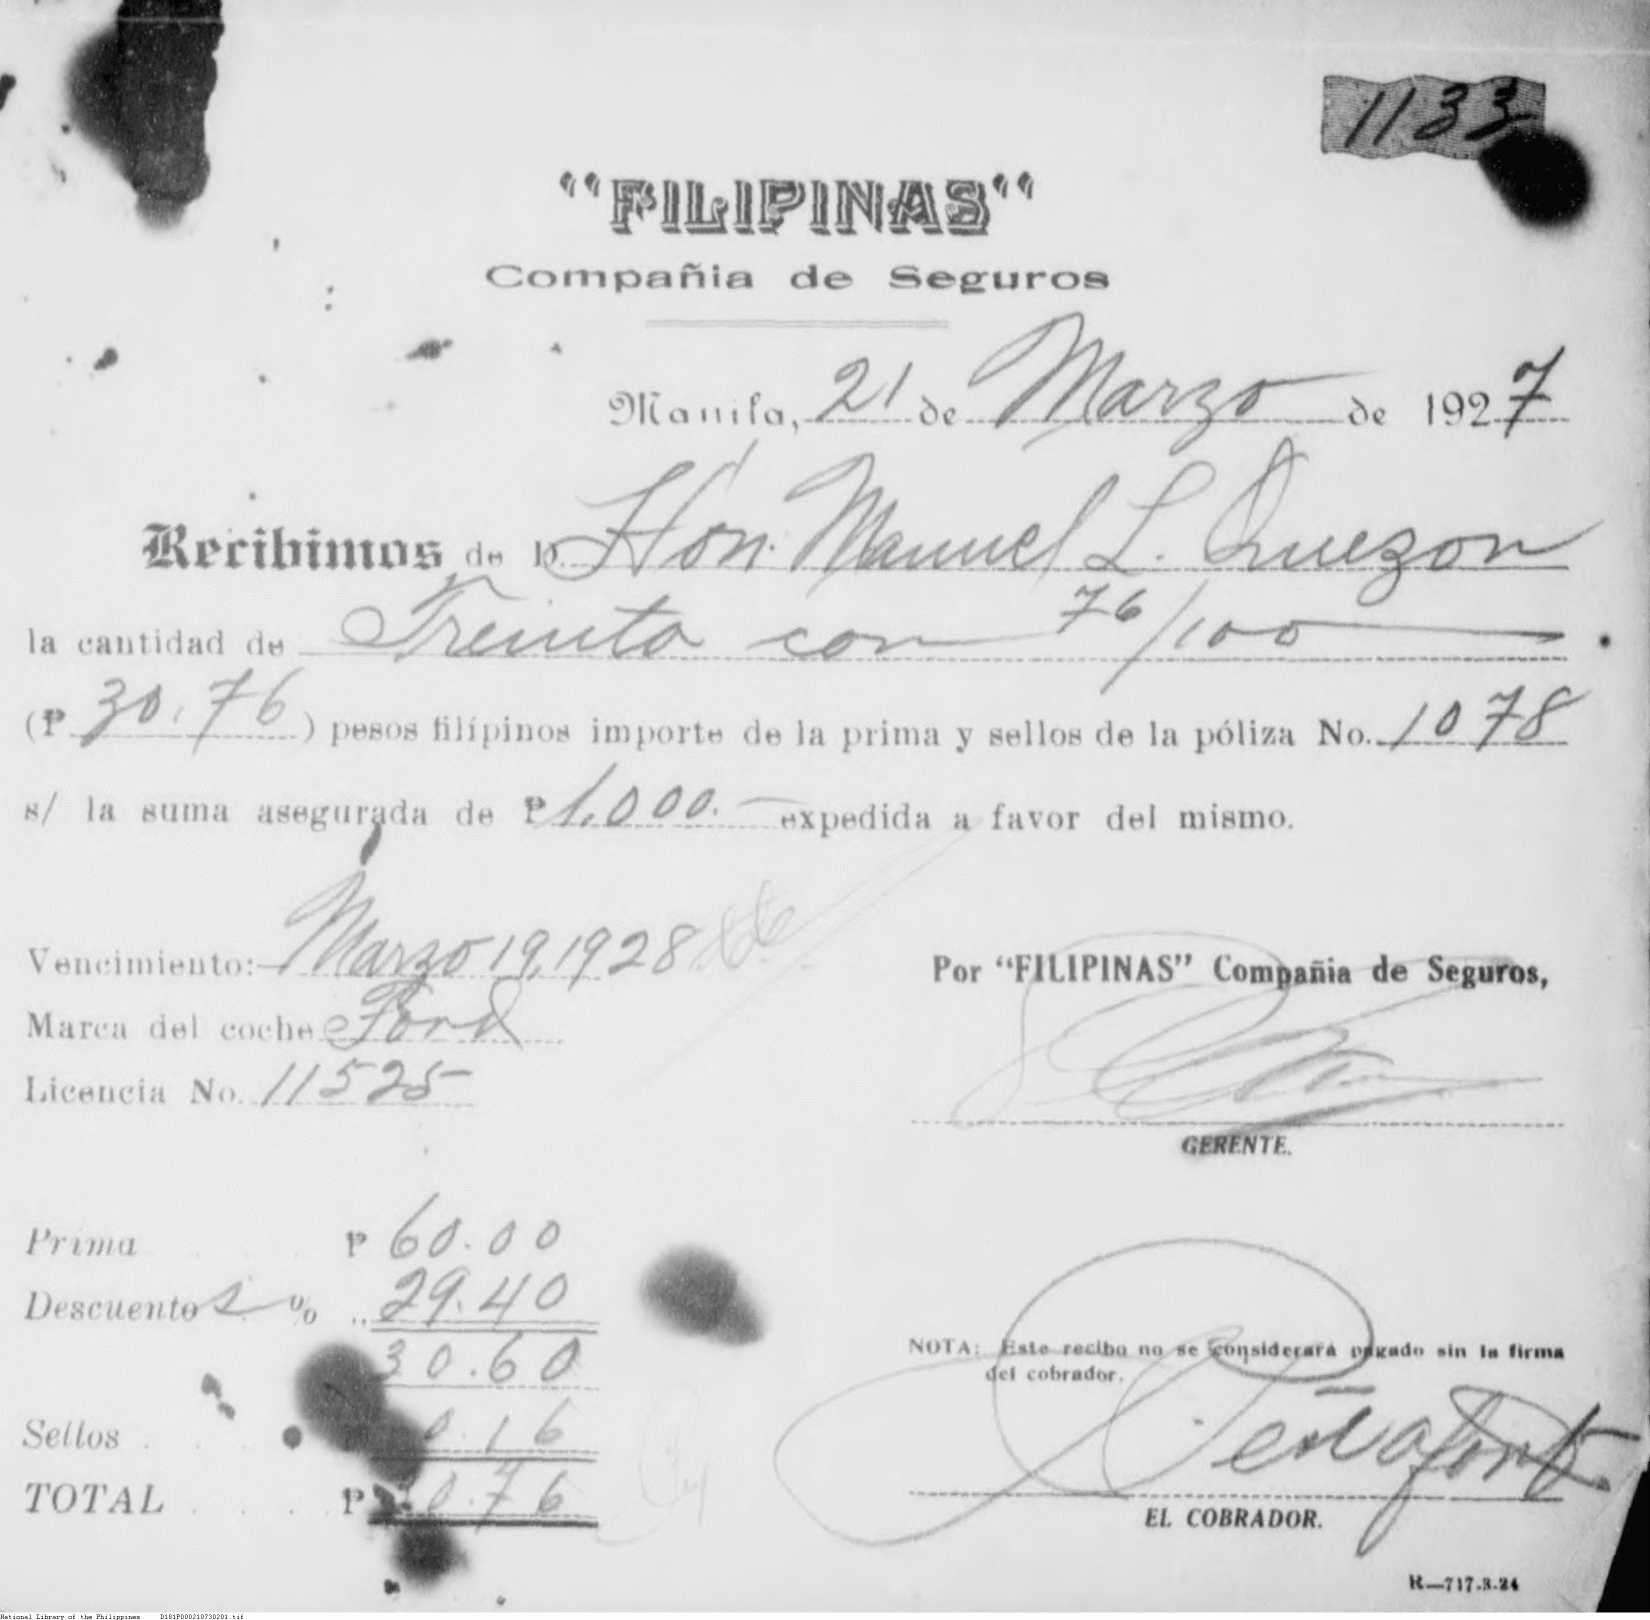 1133
"FILIPINAS"
Compañia de Seguros
Manila, 21 de Marzo de 1927
Recibimos de D. Hon. Manuel L. Quezon
la cantidad de Treinta con 76/100
(₱ 30.76) pesos filípinos importe de la prima y sellos de la póliza No. 1078
s/ la suma asegurada de ₱ 1,000.— expedida a favor del mismo.
Vencimiento: Marzo 19, 1928
Marca del coche Ford
Licencia No. 11525
Por "FILIPINAS" Compañia de Seguros,
GERENTE.
Prima ₱ 60.00
Descuentos % ,, 29.40
30.60
Sellos . . . 0.16
TOTAL . . . . ₱ 30.76
NOTA: Este recibo no se considerará pagado sin la firma
del cobrador.
Peñafort
EL COBRADOR.
R—717-3-24
National Library of the Philippines D181P000210730201.tif